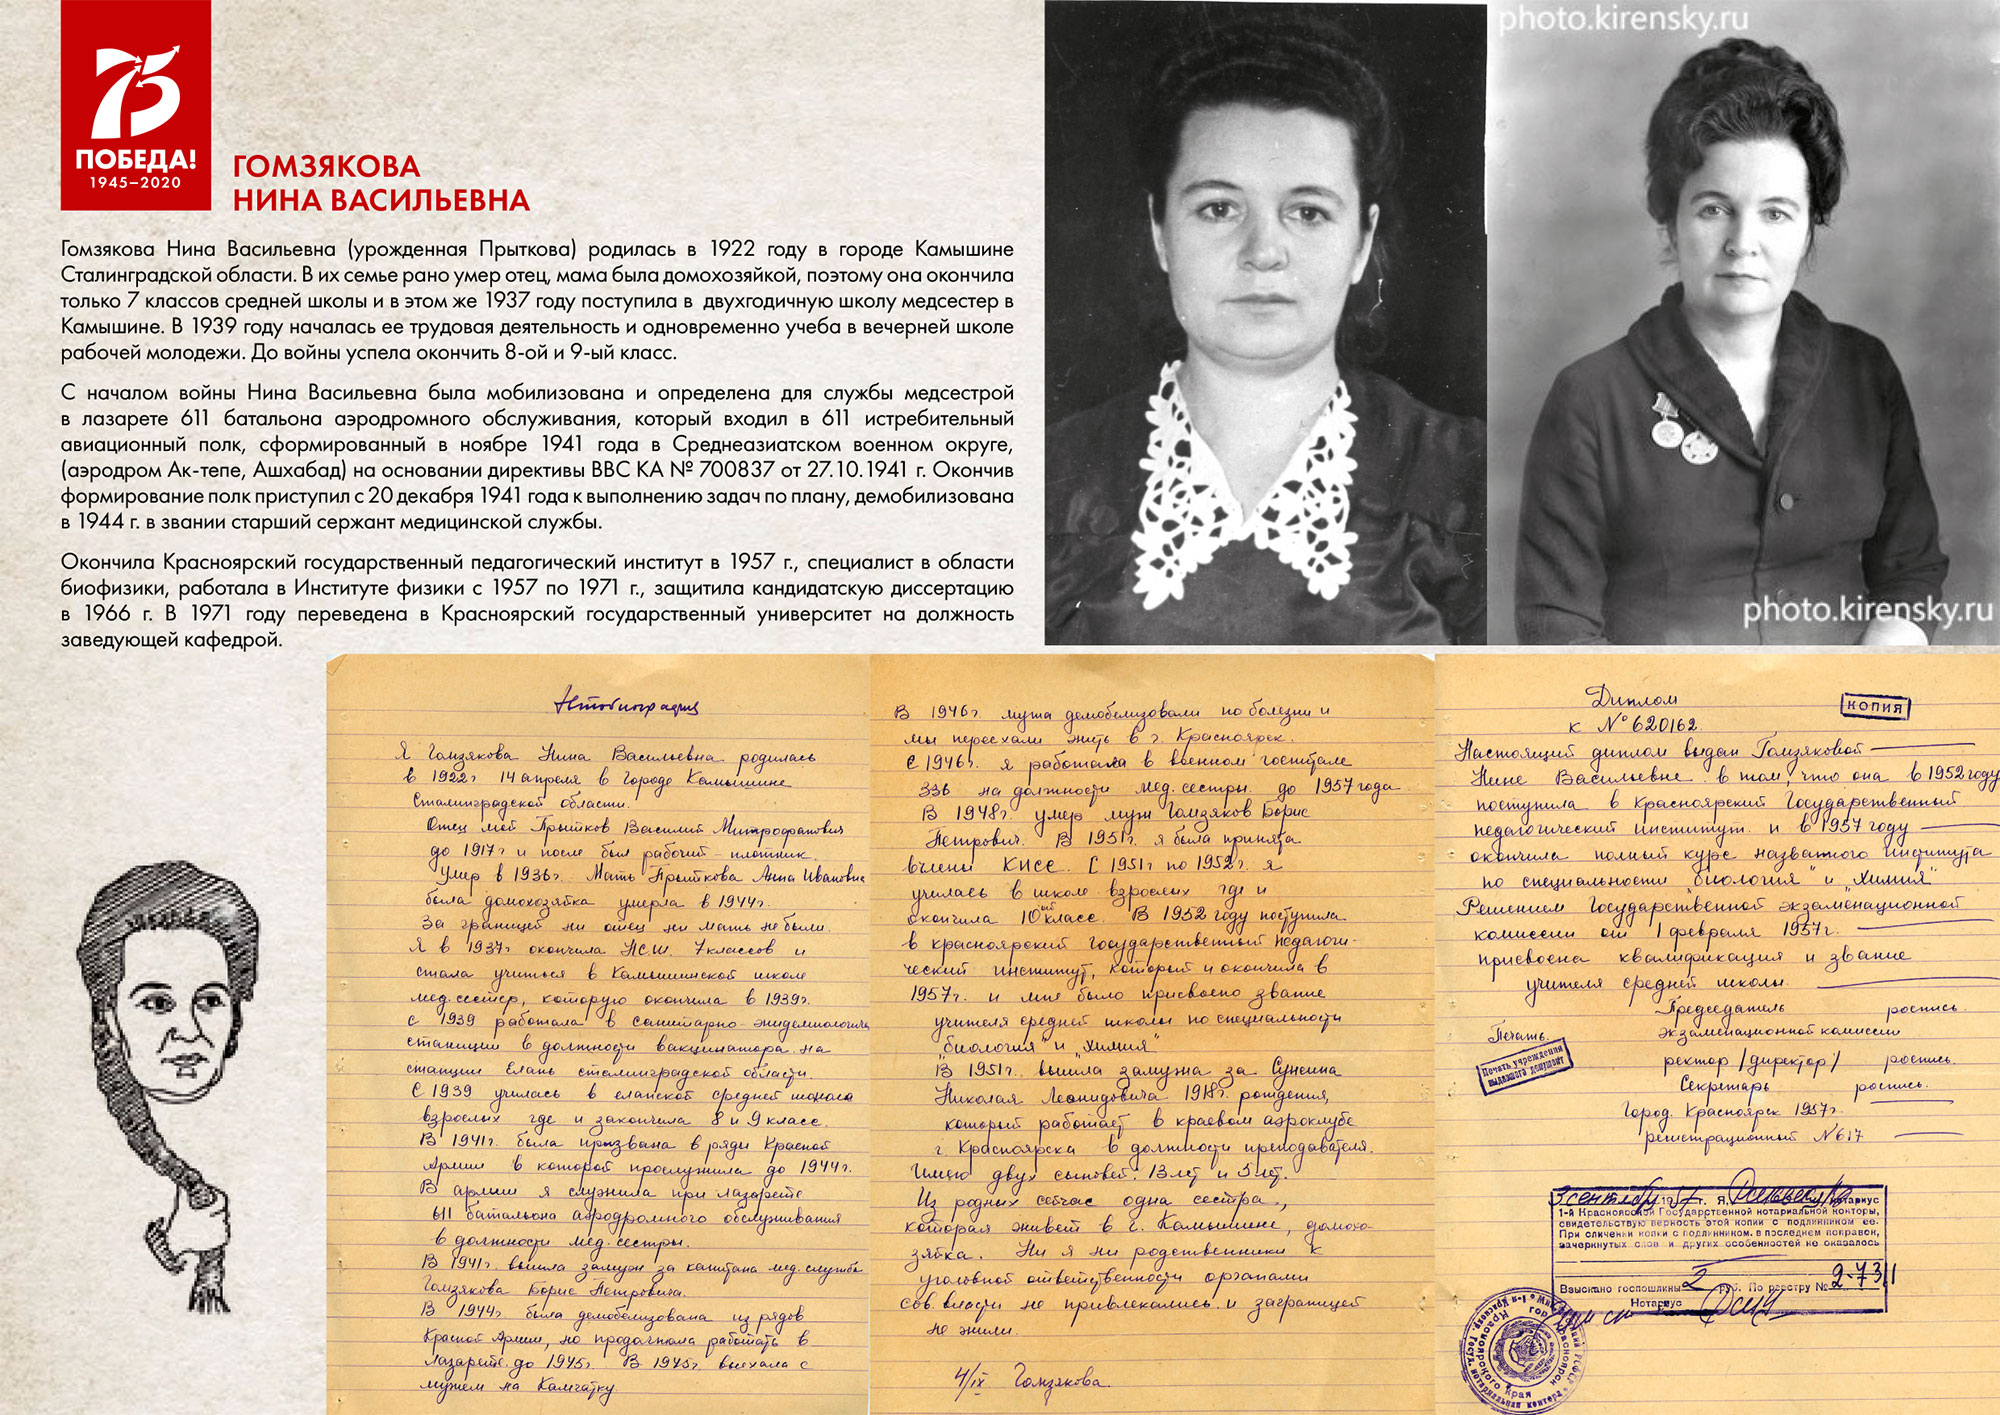 75
ПОБЕДА!
1945–2020
ГОМЗЯКОВА
НИНА ВАСИЛЬЕВНА
Гомзякова Нина Васильевна (урожденная Прыткова) родилась в 1922 году в городе Камышине
Сталинградской области. В их семье рано умер отец, мама была домохозяйкой, поэтому она окончила
только 7 классов средней школы и в этом же 1937 году поступила в двухгодичную школу медсестер в
Камышине. В 1939 году началась ее трудовая деятельность и одновременно учеба в вечерней школе
рабочей молодежи. До войны успела окончить 8-ой и 9-ый класс.
С началом войны Нина Васильевна была мобилизована и определена для службы медсестрой
в лазарете 611 батальона аэродромного обслуживания, который входил в 611 истребительный
авиационный полк, сформированный в ноябре 1941 года в Среднеазиатском военном округе,
(аэродром Ак-тепе, Ашхабад) на основании директивы ВВС КА № 700837 от 27.10.1941 г. Окончив
формирование полк приступил с 20 декабря 1941 года к выполнению задач по плану, демобилизована
в 1944 г. в звании старший сержант медицинской службы.
Окончила Красноярский государственный педагогический институт в 1957 г., специалист в области
биофизики, работала в Институте физики с 1957 по 1971 г., защитила кандидатскую диссертацию
в 1966 г. В 1971 году переведена в Красноярский государственный университет на должность
заведующей кафедрой.
photo.kirensky.ru
photo.kirensky.ru
Автобиография
Я Гомзякова Нина Васильевна родилась
в 1922г 14 апреля в городе Камышине
Сталинградской области.
Отец мой Прытков Василий Митрофанович
до 1917г и после был рабочий-плотник.
Умер в 1936г. Мать Прыткова Анна Ивановна
была домохозяйка умерла в 1944г.
За границей ни отец ни мать не были.
Я в 1937г окончила НСШ. 7 классов и
стала учиться в Камышинской школе
мед.сестер, которую окончила в 1939г.
С 1939 работала в санитарно-эпидемиологич
станции в должности вакцинатора на
станции Елань сталинградской области
С 1939 училась в еланской средней школе
взрослых где и закончила 8 и 9 класс.
В 1941г. была призвана в ряды Красной
Армии в которой прослужила до 1944г.
В армии я служила при лазарете
611 батальона аэродромного обслуживания
в должности мед.сестры.
В 1941г. вышла замуж за капитана мед.службы
Гомзякова Борис Петровича.
В 1944г. была демобелизована из рядов
Красной Армии, но продолжала работать в
лазарете до 1945г. В 1945г. выехала с
мужем на Камчатку
В 1946г. мужа демобелизовали по болезни и
мы переехали жить в г. Красноярск.
С 1946г. я работала в военном госпитале
336 на должности мед.сестры до 1957 года.
В 1948г. умер муж Гомзяков Борис
Петрович. В 1951г. я была принята
в члены КПСС. С 1951г по 1952г. я
училась в школе взрослых где и
окончила 10ый класс. В 1952 году поступила
в красноярский государственный педагоги-
ческий институт, который и окончила в
1957г. и мне было присвоено звание
учителя средней школы по специальности
"биология" и "химия"
В 1951г. вышла замужа за Сунсина
Николая Леонидовича 1918г. рождения,
который работает в краевом аэроклубе
г Красноярска в должности преподавателя.
Имею двух сыновей: 13 лет и 5 лет.
Из родных сейчас одна сестра,
которая живет в г. Камышине, домохо-
зяйка. Ни я ни родственники к
уголовной ответственности органами
сов. власти не привлекались и заграницей
не жили.
4/IX Гомзякова.
Диплом
КОПИЯ
к № 620162.
Настоящий диплом выдан Гомзяковой
Нине Васильевне в том, что она в 1952 году
поступила в Красноярский Государственный
педагогический институт и в 1957 году
окончила полный курс названного института
по специальности "биология" и "химия"
Решением Государственной экзаменационной
комиссии от 1 февраля 1957г.
присвоена квалификация и звание
учителя средней школы.
Председатель роспись.
экзаменационной комиссии
Печать.
Печать учреждения
выдавшего документ
ректор /директор/ роспись
Секретарь роспись.
Город Красноярск 1957г.
регистрационный № 617
3 сентября 1957 г. Я, нотариус
1-й Красноярской Государственной нотариальной конторы,
свидетельствую верность этой копии с подлинником ее.
При сличении копии с подлинником, в последнем поправок,
зачеркнутых слов и других особенностей не оказалось
Взыскано госпошлины 2 руб. По реестру № 2-7311
Нотариус